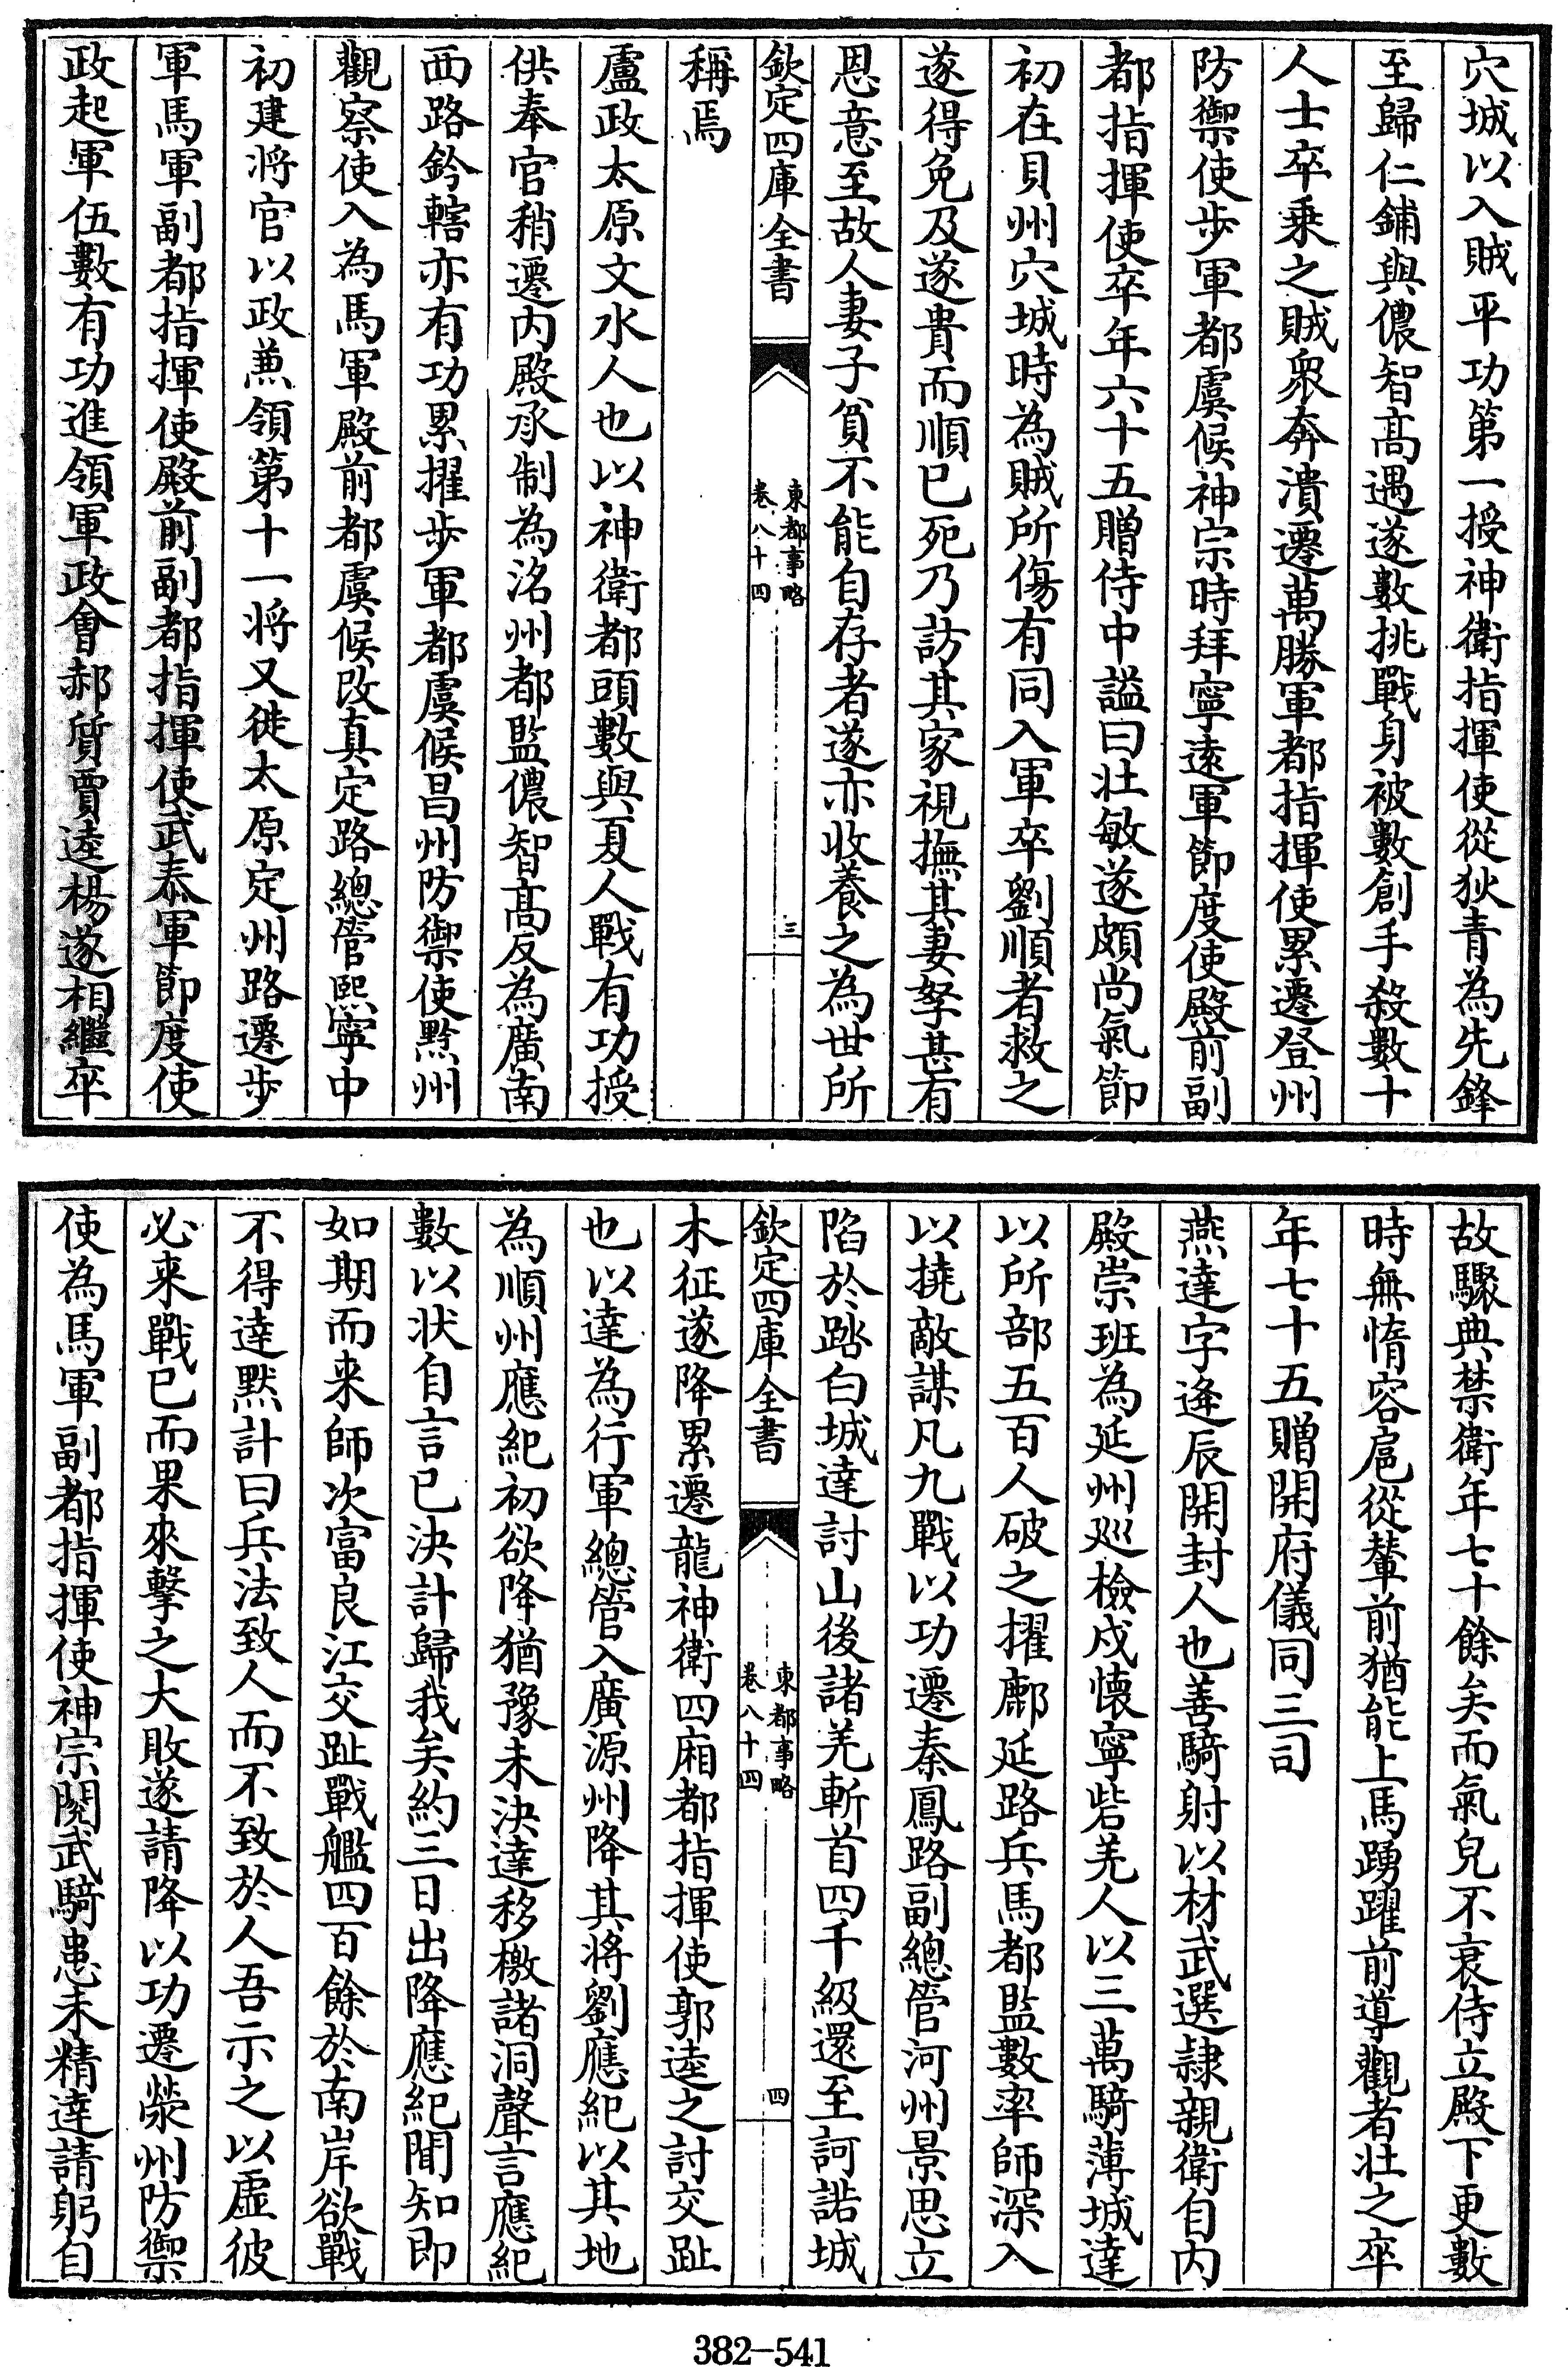 穴城以入賊平功第一授神衛指揮使從狄青為先鋒
至歸仁鋪與儂智髙遇遂數挑戰身被數創手殺數十
人士卒乗之賊衆奔潰遷萬勝軍都指揮使累遷登州
防禦使步軍都虞候神宗時拜寧遠軍節度使殿前副
都指揮使卒年六十五贈侍中諡曰壯敏遂頗尚氣節
初在貝州穴城時為賊所傷有同入軍卒劉順者救之
遂得免及遂貴而順已死乃訪其家視撫其妻孥甚有
恩意至故人妻子貧不能自存者遂亦收養之為世所
欽定四庫全書
東都事略
卷八十四
三
稱焉
盧政太原文水人也以神衛都頭數與夏人戰有功授
供奉官稍遷内殿承制為洺州都監儂智髙反為廣南
西路鈐轄亦有功累擢步軍都虞候昌州防禦使黙州
觀察使入為馬軍殿前都虞候改真定路總管熙寧中
初建將官以政兼領第十一將又徙太原定州路遷步
軍馬軍副都指揮使殿前副都指揮使武泰軍節度使
政起軍伍數有功進領軍政會郝質賈逵楊遂相繼卒
故驟典禁衛年七十餘矣而氣皃不衰侍立殿下更數
時無惰容扈從輦前猶能上馬踴躍前導觀者壮之卒
年七十五贈開府儀同三司
燕達字逄辰開封人也善騎射以材武選隷親衛自内
殿崇班為延州巡檢戍懷寧砦羌人以三萬騎薄城達
以所部五百人破之擢鄜延路兵馬都監數率師深入
以撓敵謀凡九戰以功遷秦鳳路副總管河州景思立
陷於踏白城達討山後諸羌斬首四千級還至訶諾城
欽定四庫全書
東都事略
卷八十四
四
木征遂降累遷龍神衛四廂都指揮使郭逵之討交趾
也以達為行軍總管入廣源州降其將劉應紀以其地
為順州應紀初欲降猶豫未決達移檄諸洞聲言應紀
數以状自言已決計歸我矣約三日出降應紀聞知即
如期而来師次富良江交趾戰艦四百餘於南岸欲戰
不得達黙計曰兵法致人而不致於人吾示之以虛彼
必来戰已而果來擊之大敗遂請降以功遷榮州防禦
使為馬軍副都指揮使神宗閱武騎患未精達請躬自
382-541